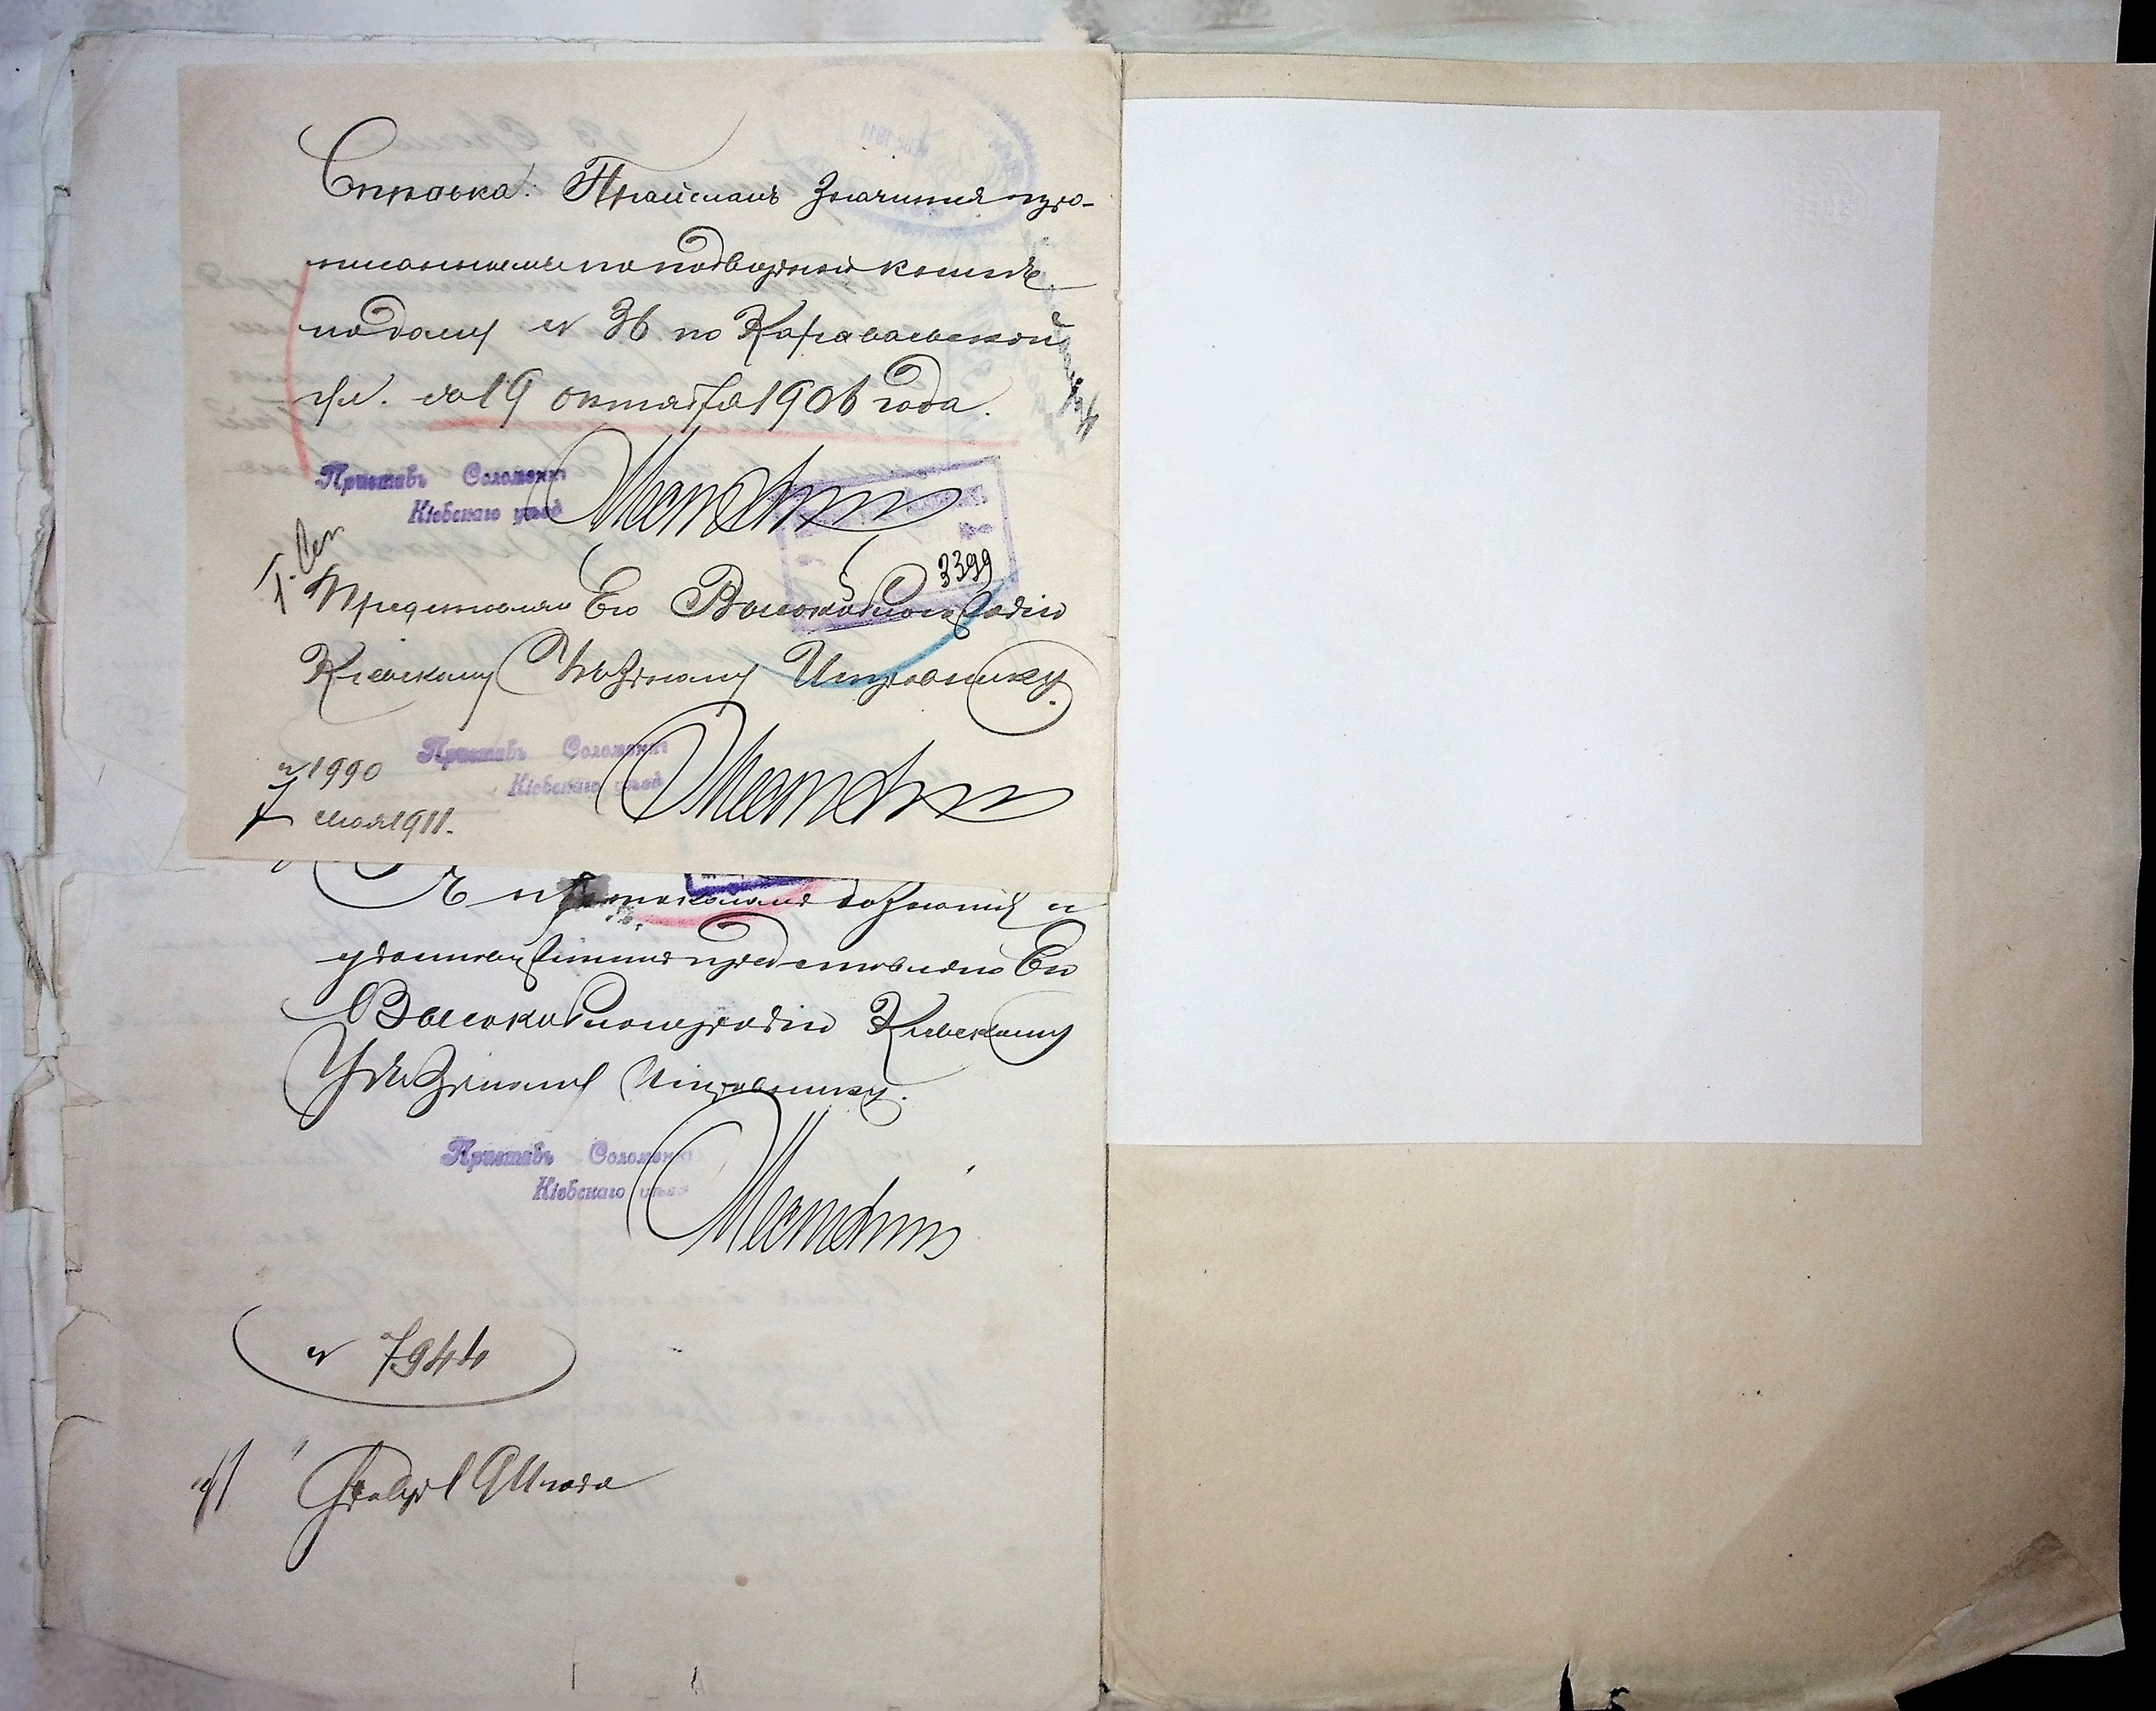 Справка: Прайсманъ Значится про-
писаннымъ по подворной книгѣ
по дому № 36 по Караваевской
ул. съ 19 октября 1906 года.
Приставъ Соломенк
Кіевскаго уѣзд
3399
Представляю Его Высокоблагородію
Кіевскому Уѣздному Исправнику.
Приставъ Соломенк
Кіевскаго уѣзд
№ 1990
7 мая 1911.
дознанія и
удостовѣреніе представляю Его
Высокоблагородію Кіевскому
Уѣздному Исправнику.
Приставъ Соломенк
Кіевскаго уѣзд
№ 7944
911 года